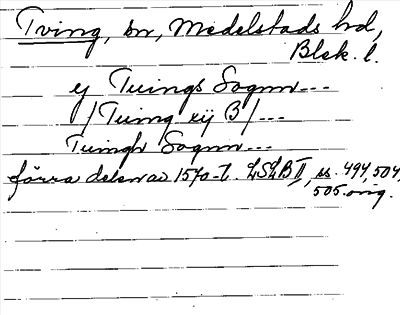 Tving, sn, Medelstads hd,
Blek. l.
ej Tuings Sognn---
/Tuing eij B/---
Tuingh Sognn---
förra delen av 1570-t. LSLB II, ss. 494, 504,
505. orig.